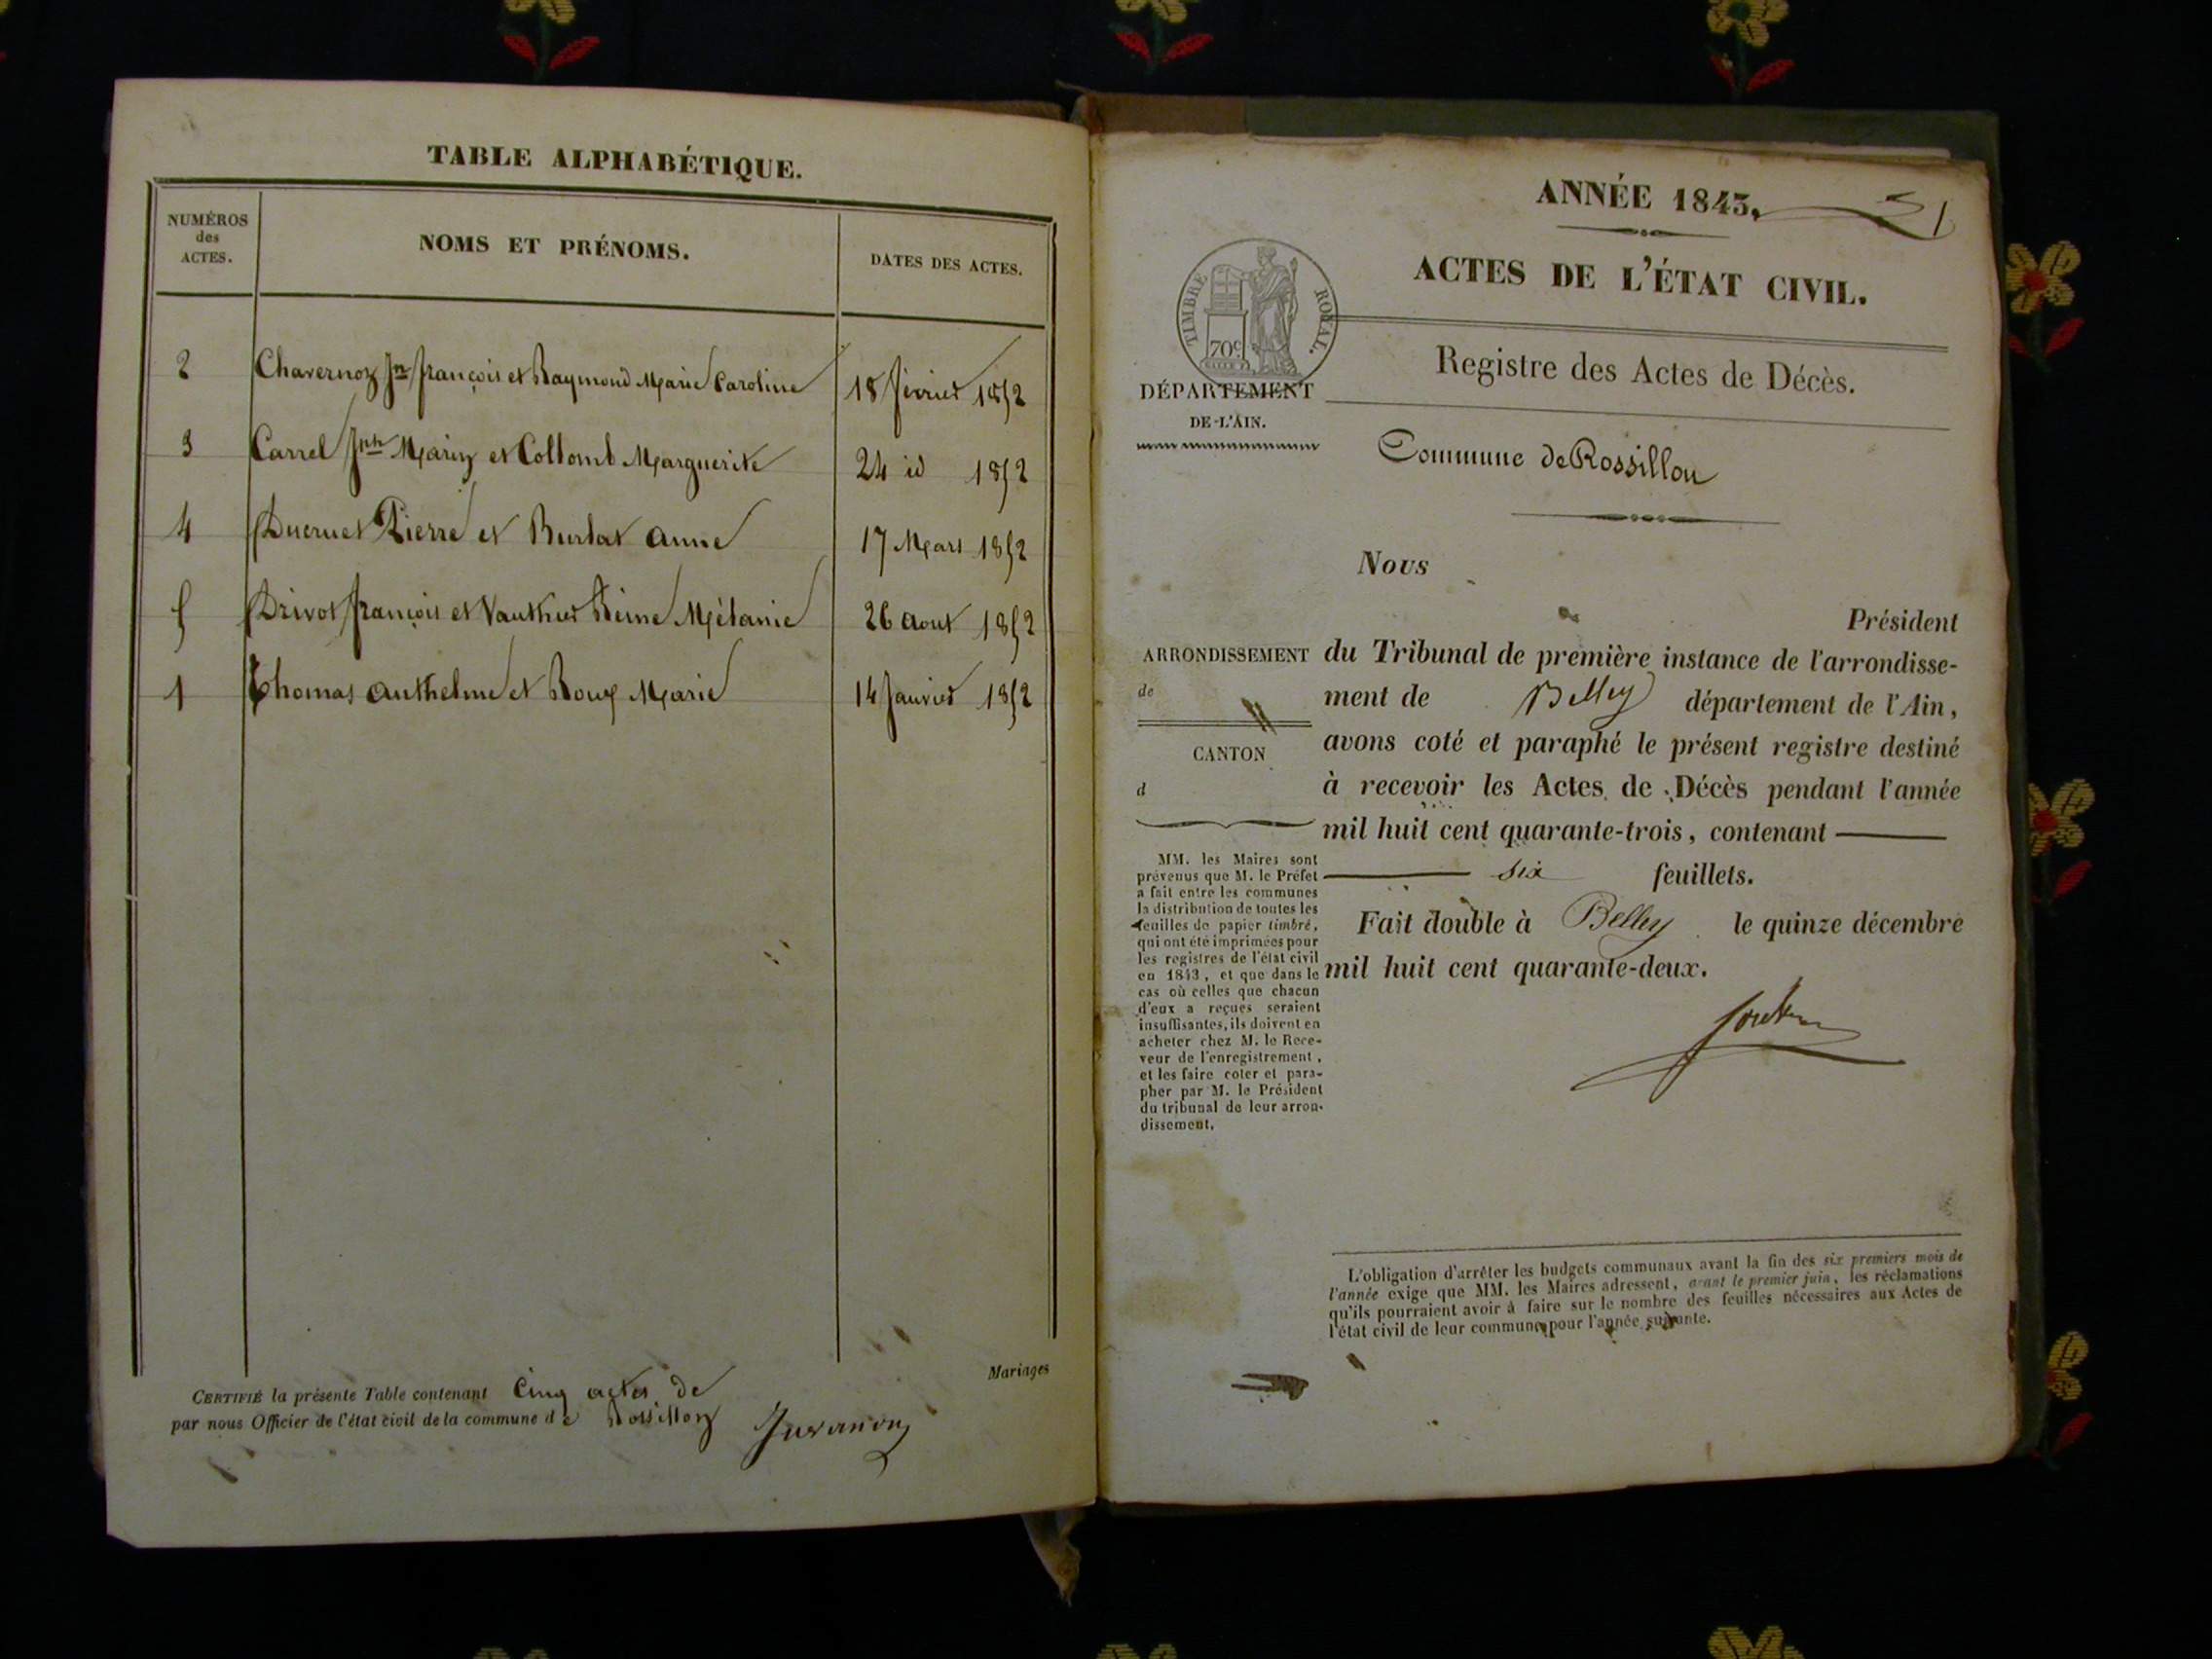 TABLE ALPHABÉTIQUE.
NUMÉROS
des
ACTES.
NOMS ET PRÉNOMS.
DATES DES ACTES.
2 Chavernoz Jn François et Raymond Marie Caroline 18 février 1852
3 Carrel Jph Marin et Collomb Marguerite 24 id 1852
4 Ducruet Pierre et Burlat Anne 17 Mars 1852
5 Drivot François et Vauthier Reine Mélanie 26 Aout 1852
1 Thomas Anthelme et Roux Marie 14 Janvier 1852
Mariages
CERTIFIÉ la présente Table contenant Cinq actes de
par nous Officier de l'état civil de la commune d e Rossillon Juvanon
ANNÉE 1843.
1
ACTES DE L'ÉTAT CIVIL.
TIMBRE ROYAL.
70c
Registre des Actes de Décès.
DÉPARTEMENT
DE-L'AIN.
Commune de Rossillon
Nous
Président
ARRONDISSEMENT
de
CANTON
d
du Tribunal de première instance de l'arrondisse-
ment de Belley département de l'Ain,
avons coté et paraphé le présent registre destiné
à recevoir les Actes de Décès pendant l'année
mil huit cent quarante-trois, contenant
six feuillets.
Fait double à Belley le quinze décembre
mil huit cent quarante-deux.
MM. les Maires sont
prévenus que M. le Préfet
a fait entre les communes
la distribution de toutes les
feuilles de papier timbré,
qui ont été imprimées pour
les registres de l'état civil
en 1843, et que dans le
cas où celles que chacun
d'eux a reçues seraient
insuffisantes, ils doivent en
acheter chez M. le Rece-
veur de l'enregistrement,
et les faire coter et para-
pher par M. le Président
du tribunal de leur arron-
dissement.
L'obligation d'arrêter les budgets communaux avant la fin des six premiers mois de
l'année exige que MM. les Maires adressent, avant le premier juin, les réclamations
qu'ils pourraient avoir à faire sur le nombre des feuilles nécessaires aux Actes de
l'état civil de leur commune pour l'année suivante.